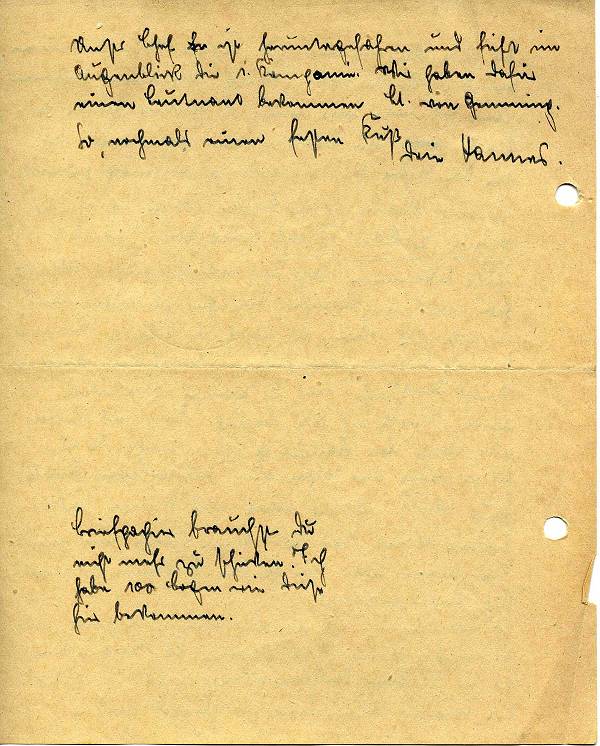 Unser Chef ist heruntergefahren und führt im
Augenblick die 1. Kompanie. Wir haben dafür
einen Leutnant bekommen Lt. von Gemming.
So, nochmals einen festen Kuß
Dein Hannes.
Briefpapier brauchst Du
nicht mehr zu schicken. Ich
habe 100 Bogen wie diese
hier bekommen.